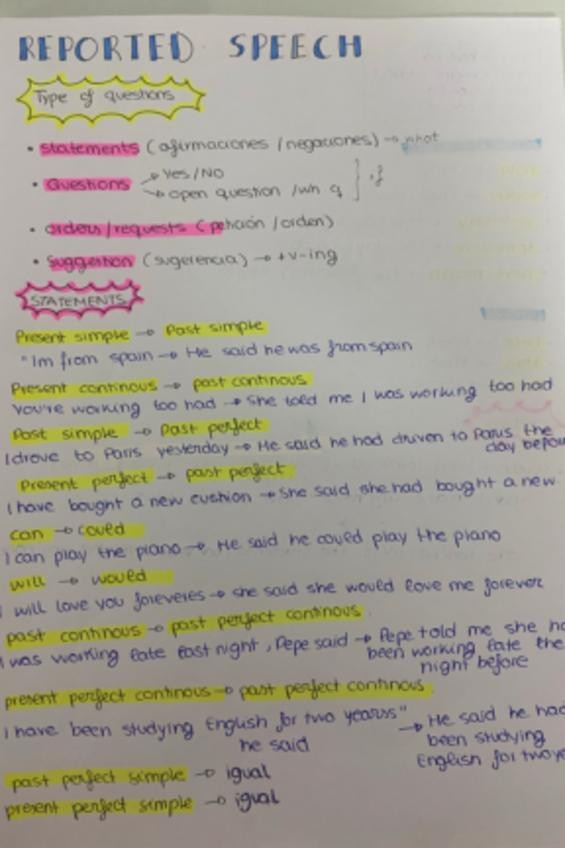 REPORTED SPEECH
Type of questions
• statements (afirmaciones / negaciones) →
• Questions → Yes / NO
→ open question / wh q } if
• orders / requests (petición / orden)
• Suggestion (sugerencia) → + v-ing
STATEMENTS
Present simple → Past simple
"Im from spain → He said he was from spain
Present continous → past continous
You're working too had → She told me I was working too had
Past simple → Past perfect
I drove to Paris yesterday → He said he had driven to Paris the
day
Present perfect → past perfect
I have bought a new cushion → She said she had bought a new
can → could
I can play the piano → He said he could play the piano
will → would
I will love you foreveres → she said she would love me forever
past continous → past perfect continous
I was working late last night, Pepe said → Pepe told me she
been working late the
night before
present perfect continous → past perfect continous
I have been studying English for two yearss" → He said he had
he said
been studying
English for two
past perfect simple → igual
present perfect simple → igual